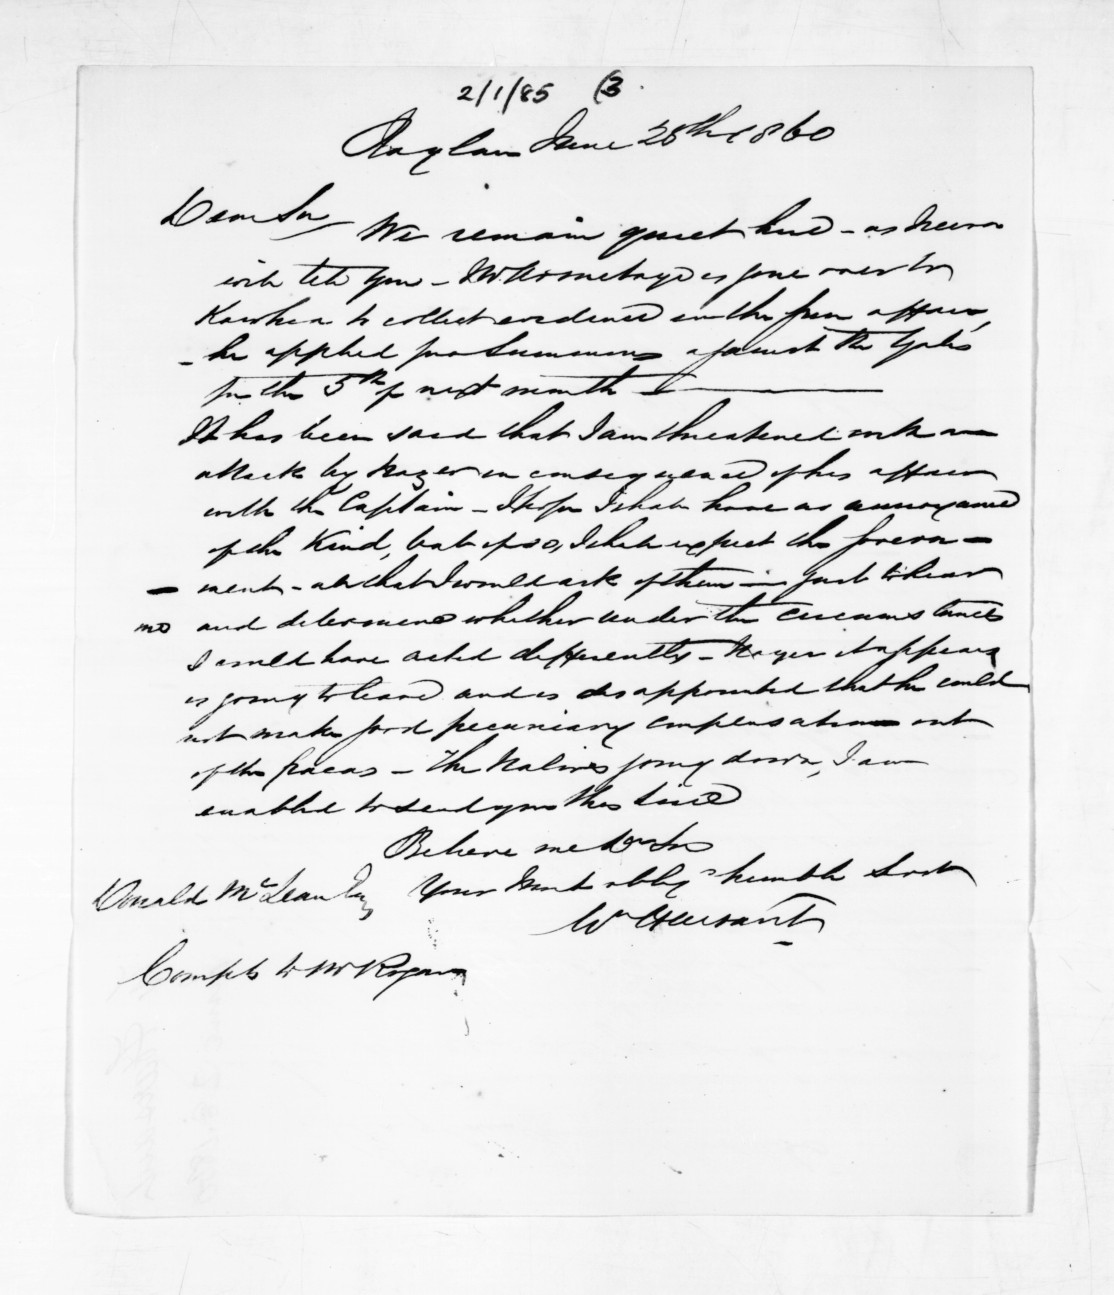 2/1/85 (3.
Raglan June 28th 1860
Dear Sir
We remain quiet here - as
will tell you - is gone over to
Kawhia to collect evidence in the affair,
- he applied for a Summons against the
for the 5th of next month
It has been said that I am threatened with an
attack by in consequence of his affair
with the Captain - I hope I shall have no annoyance
of the Kind, but if so, I shall expect the Govern-
- ment - all that I would ask of them - just to hear
and determine whether under the circumstances
I could have acted differently - it appears
is going to leave and is disappointed that he could
not make good pecuniary compensation out
of the fracas - The Natives going down, I am
enabled to send you this line
Believe me Dr Sir
Your Most oblg humble Servt
Donald McLean Esq
Wm Harsant
Compts to Mr Rogan